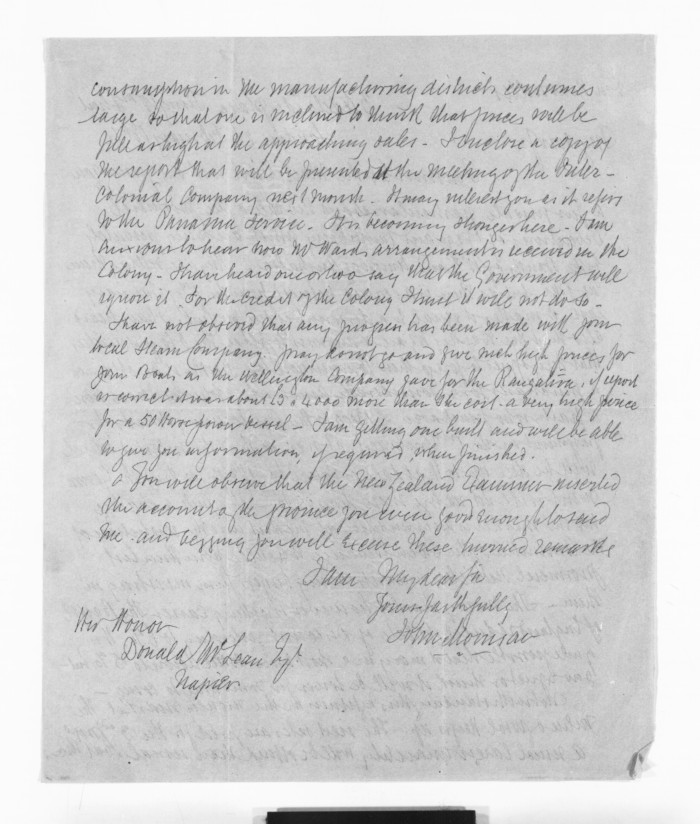 consumption in the manufacturing districts continues
large so that one is inclined to think that prices will be
full as high at the approaching sales - I enclose a copy of
the report that will be presented at the meeting of the Inter-
Colonial Company next month. It may interest you as it refers
to the Panama Service. It is becoming stronger here - I am
anxious to hear how Mr Wards arrangement is received in the
Colony - I have heard one or two say that the Government will
ignore it. For the credit of the Colony I trust it will not do so -
I have not observed that any progress has been made with your
local Steam Company. Pray do not go and give such high prices for
your Boats as the Wellington Company gave for the Rangatira, if report
is correct it was about £3 a 4000 more than the cost - a very high price
for a 50 Horse power vessel - I am getting one built and will be able
to give you information, if required, when finished.
You will observe that the New Zealand Examiner inserted
the account of the province you were good enough to send
me - and begging you will excuse these hurried remarks
I am My dear Sir
Yours faithfully
John Morrison
His Honor
Donald McLean Esqr
Napier